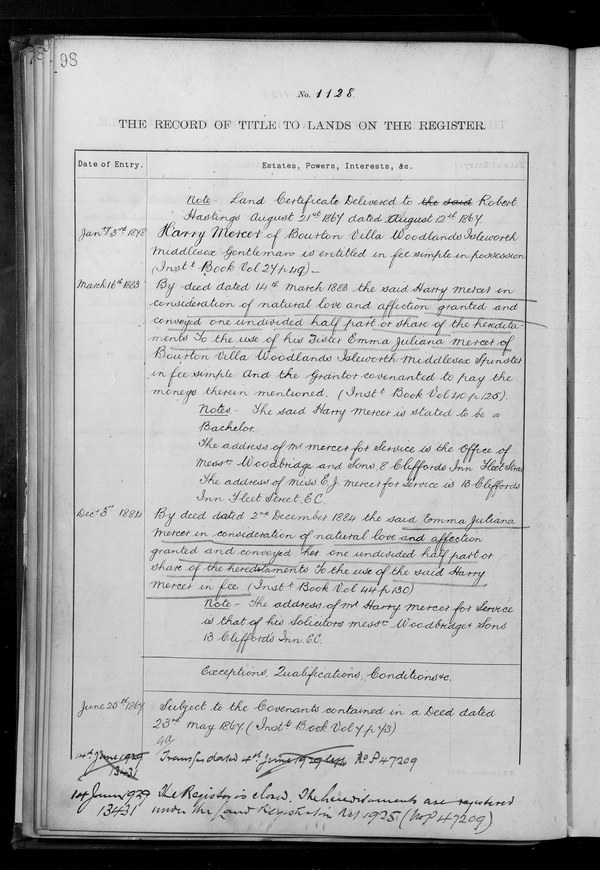 98
No. 1128.
THE RECORD OF TITLE TO LANDS ON THE REGISTER.
Date of Entry. Estates, Powers, Interests, &c.
Note - Land Certificate Delivered to the said Robert
Hastings August 21st 1867 dated August 12th 1867.
Jany 3rd 1878 Harry Mercer of Bourton Villa Woodlands Isleworth
Middlesex Gentleman is entitled in fee simple in possession
(Instt Book Vol 27 p 49) -
March 16th 1883 By deed dated 14th March 1883 the said Harry Mercer in
consideration of natural love and affection granted and
conveyed one undivided half part or share of the heredita-
ments To the use of his Sister Emma Juliana Mercer of
Bourton Villa Woodlands Isleworth Middlesex Spinster
in fee simple and the Grantor covenanted to pay the
moneys therein mentioned. (Instt Book Vol 40 p 125).
Notes - The said Harry Mercer is stated to be a
Bachelor.
The address of Mr Mercer for Service is the Office of
Messrs Woodbridge and Sons, 8 Cliffords Inn Fleet Street
The address of Miss E. J. Mercer for Service is 13 Cliffords
Inn Fleet Street, E.C.
Decr 3rd 1884 By deed dated 2nd December 1884 the said Emma Juliana
Mercer in consideration of natural love and affection
granted and conveyed her one undivided half part or
share of the hereditaments To the use of the said Harry
Mercer in fee (Instt Book Vol 44 p 130)
Note - The address of Mr Harry Mercer for Service
is that of his Solicitors Messrs Woodbridge & Sons
13 Clifford's Inn. E.C.
Exceptions, Qualifications, Conditions &c.
June 20th 1867 Subject to the Covenants contained in a Deed dated
23rd May 1867 (Instt Book Vol 7 p 73)
14th June 1929 Transfer dated 4th June 1929 No P 47209
13431
14 June 1929 The Register is closed. The hereditaments are registered
13431 under the Land Registration Act 1925 (No P 47209)